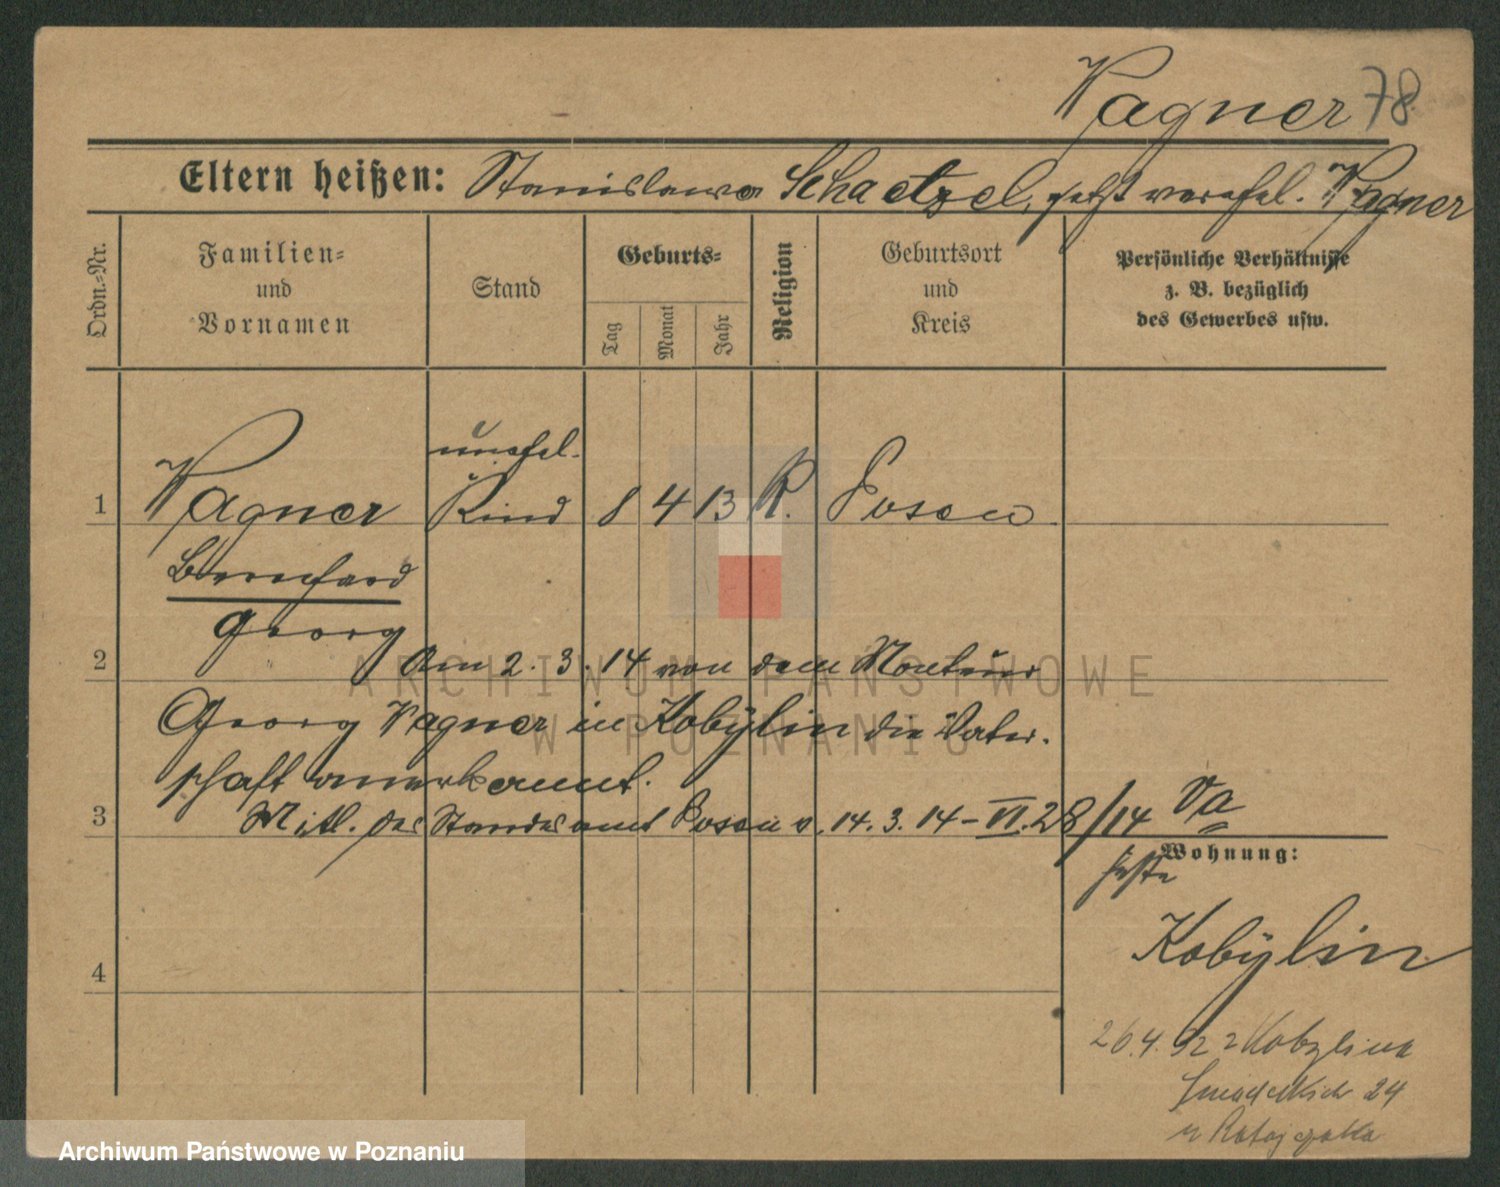 Wagner 78
Eltern heißen: Stanislawa Schaetzel, jetzt verehel. Wagner
Ordn.-Nr.
Familien-
und
Vornamen
Stand
Geburts-
Tag
Monat
Jahr
Religion
Geburtsort
und
Kreis
Persönliche Verhältnisse
z. B. bezüglich
des Gewerbes usw.
unehel.
1 Wagner Kind 8 4 13 R. Posen.
Bernhard
Georg
2 Am 2. 3. 14 von dem Monteur
Georg Wagner in Kobylin die Vater-
schaft anerkannt.
3 Mitl. des Standesamt Posen v. 14. 3. 14 – VI. 28/14
Wohnung:
Kobylin
4
26.4. 32 z Kobylina
Śniadeckich 24
u Ratajczaka
ARCHIWUM PAŃSTWOWE
W POZNANIU
Archiwum Państwowe w Poznaniu